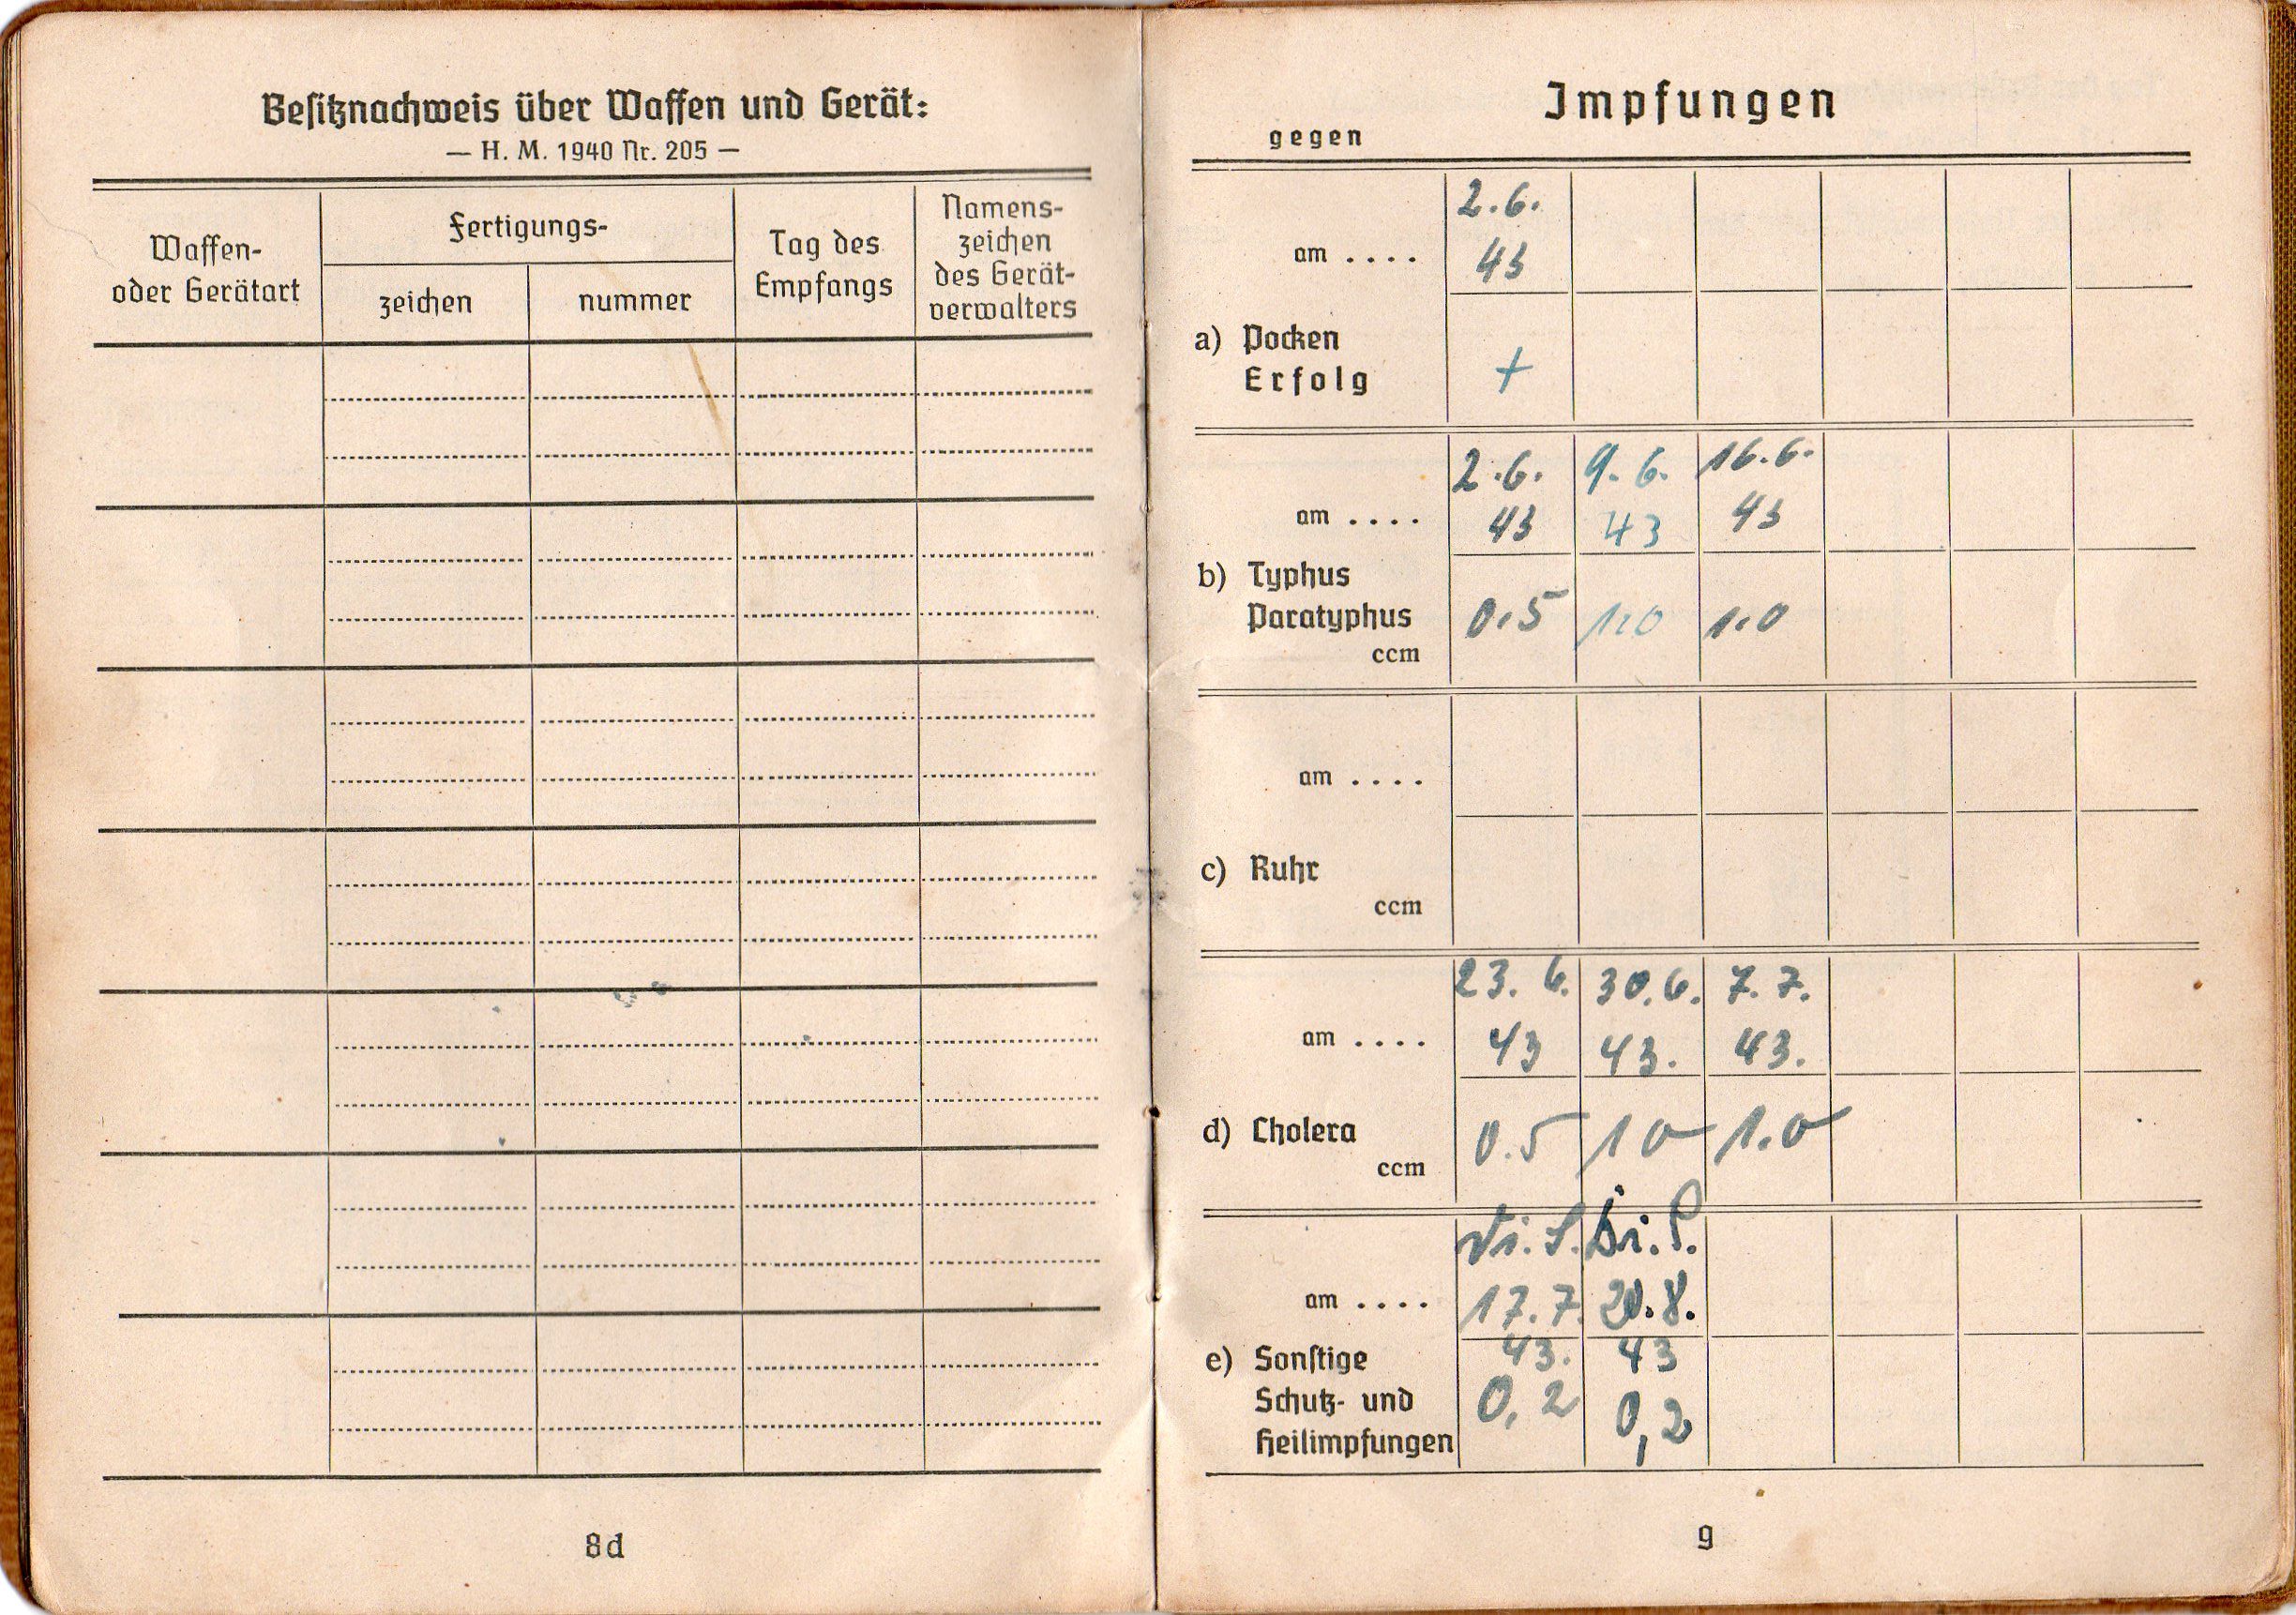 Besitznachweis über Waffen und Gerät:
— H. M. 1940 Nr. 205 —
Waffen-
oder Gerätart
Fertigungs-
zeichen
nummer
Tag des
Empfangs
Namens-
zeichen
des Gerät-
verwalters
8d
Impfungen
gegen
2.6.
am .... 43
a) Pocken
Erfolg +
2.6. 9.6. 16.6.
am .... 43 43 43
b) Typhus
Paratyphus 0.5 1.0 1.0
ccm
am ....
c) Ruhr
ccm
23. 6. 30.6. 7.7.
am .... 43 43. 43.
d) Cholera 0.5 10 1.0
ccm
Di. Di.
am .... 17.7. 20.8.
e) Sonstige 43. 43
Schutz- und 0,2 0,2
Heilimpfungen
9